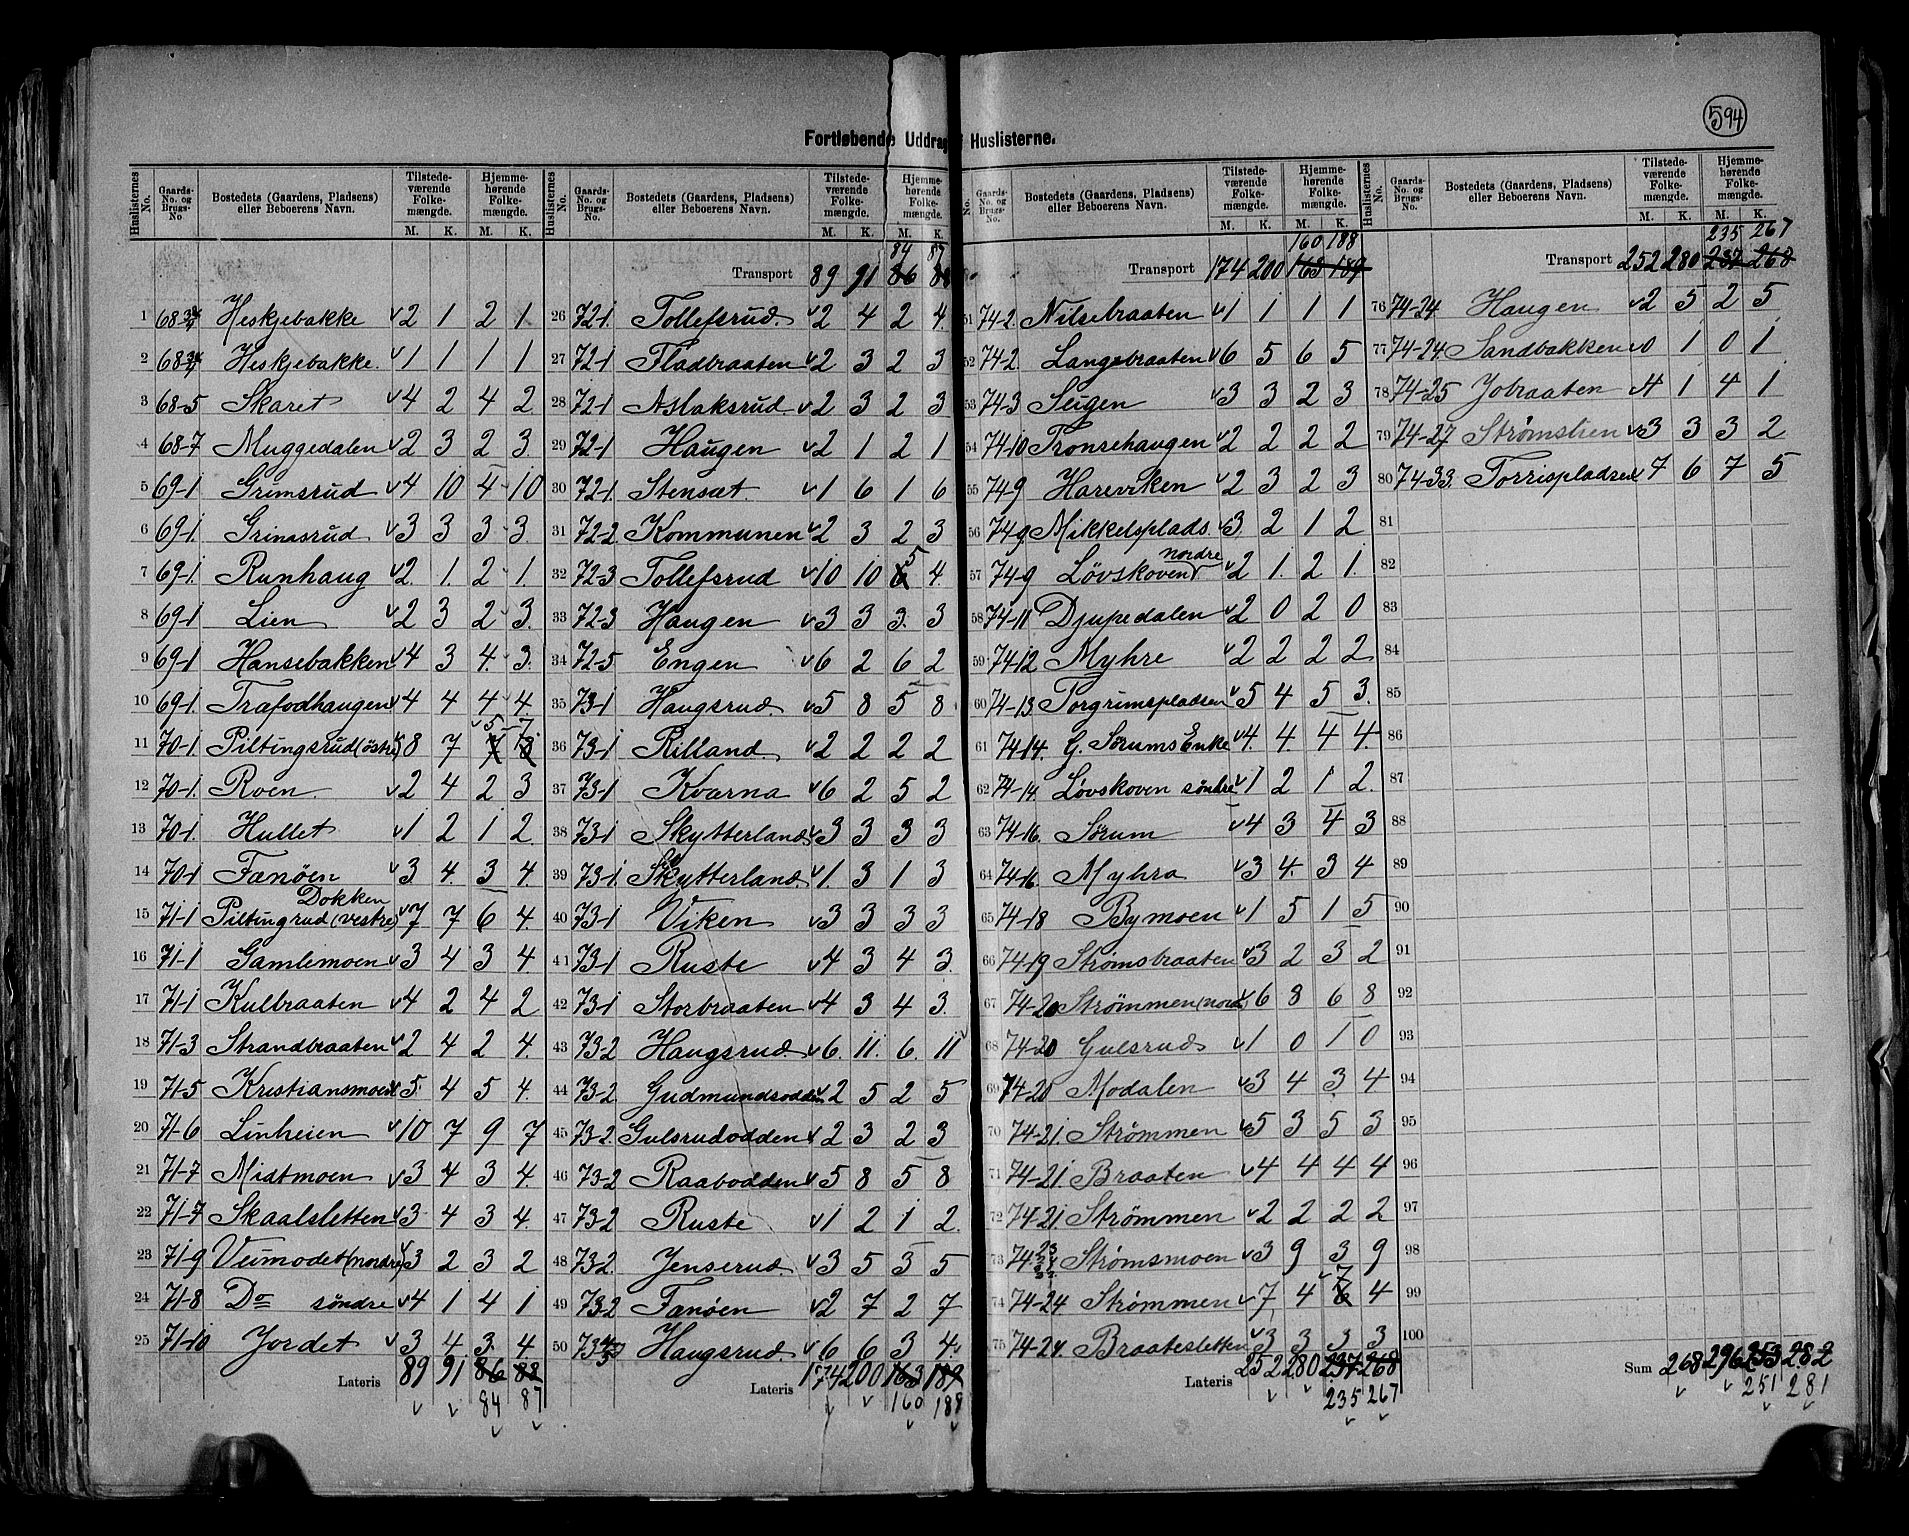 594
Fortløbende Uddrag Huslisterne.
Huslisternes No. Gaards-No. og Brugs-No Bostedets (Gaardens, Pladsens) eller Beboerens Navn. Tilstedeværende Folkemængde. M. K. Hjemmehørende Folkemængde. M. K.
1 68 Heskjebakke 2 1 2 1
2 68 Heskjebakke. 1 1 1 1
3 68-5 Skaret 4 2 4 2
4 68-7 Muggedalen 2 3 2 3
5 69-1 Grimsrud 4 10 4 10
6 69-1. Grimsrud 3 3 3 3
7 69-1. Runhaug 2 1. 2 1.
8 69-1 Lien 2 3 2 3.
9 69-1 Hansebakken 4 3 4. 3.
10 69-1. Trafodhaugen 4 4 4 4
11 70-1. Piltingsrud (östre) 8 7 5 7
12 70-1. Roen 2 4 2 3
13 70-1. Hullet 1 2 1 2.
14 70-1 Fanöen 3. 4. 3 4.
15 71-1 Piltingrud (vestre) Dokken 7 7 6 4.
16 71-1 Gamlemoen 3 4 3 4
17 71-1 Kulbraaten 4 2 4 2
18 71-3 Strandbraaten 2 4 2 4.
19 71-5 Kristiansmoen 5. 4 5 4.
20 71-6 Linheien 10 7 9 7
21 71-7 Midtmoen 3 4 3 4.
22 71-7 Skaalsletten 3 4 3 4.
23 71-9 Veimodet (nordre) 3 2 3 2
24 71-8 Do søndre 4 1 4 1
25 71-10 Jordet 3 4 3. 4
Lateris 89 91 86 88
84 87
Huslisternes No. Gaards-No. og Brugs-No. Bostedets (Gaardens, Pladsens) eller Beboerens Navn. Tilstedeværende Folkemængde. M. K. Hjemmehørende Folkemængde. M. K.
84 87
Transport 89 91 86 88
26 72-1. Tollefsrud. 2 4 2 4.
27 72-1 Fladbraaten 2 3 2 3
28 72-1 Aslaksrud 2 3 2 3
29 72-1 Haugen 2 1 2 1
30 72-1. Stensæt. 1 6 1 6
31 72-2. Kommunen 2 3 2 3
32 72-3 Tollefsrud 10 10 5 4.
33 72-3 Haugen 3 3 3. 3
34 72-5 Engen 6 2 6 2
35 73-1 Haugsrud. 5 8 5 8
36 73-1 Rilland. 2 2 2 2
37 73-1 Kværna 6 2 5 2
38 73-1 Skytterland 3 3 3 3
39 73-1. Skytterland. 1. 3 1 3
40 73-1 Viken 3 3 3 3
41 73-1 Ruste 4 3 4 3.
42 73-1 Storbraaten 4 3 4 3.
43 73-2 Haugsrud. 6. 11. 6. 11
44 73-2. Gudmundsodden 2 5 2 5
45 73-2 Gulsrudodden 2 3 2 3
46 73-2 Raabodden 5 8 5 8
47 73-2 Ruste 1 2 1 2.
48 73-2. Jenserud. 3 5 3 5
49 73-2 Fanöen 2 7 2 7
50 73 Haugsrud. 6 6 3 4
Lateris 174 200 163 189
160 188
Gaards-No. og Brugs-No. Bostedets (Gaardens, Pladsens) eller Beboerens Navn. Tilstedeværende Folkemængde. M. K. Hjemmehørende Folkemængde. M. K.
160 188
Transport 174 200 163 189
51 74-2. Nilsebraaten 1 1 1 1
52 74-2. Langebraaten 6 5 6 5
53 74-3 Seugen 3 3 2 3
54 74-10 Tronsehaugen 2 2 2 2
55 74-9 Hareviken 2 3 2 3
56 74-9 Mikkelsplads. 3. 2 1 2
57 74-9 Lövskoven nordre 2 1. 2 1.
58 74-11 Djupedalen 2 0 2 0
59 74-12 Myhre 2 2 2 2
60 74-13. Torgrimspladsen 5 4 5 3.
61 74-14. G. Sørums Enke 4. 4. 4 4.
62 74-14. Løvskoven søndre 1 2 1 2.
63 74-16. Sørum 4 3 4 3
64 74-16. Myhra 3 4. 3 4
65 74-18 Bymoen 1 5 1 5
66 74-19 Strømsbraaten 3 2 3 2
67 74-20 Strömmen (nord) 6 8 6 8
68 74-20 Gulsrud 1 0 1 0
69 74-20 Modalen 3 4 3 4
70 74-21. Strømmen 5 3 5 3
71 74-21. Braaten 4 4 4 4
72 74-21. Strømmen 2 2 2 2
73 74 Strømsmoen 3 9 3 9
74 74-24 Strømmen 7 4 7 4
75 74-24. Braatesletten 3 3 3 3
Lateris 252 280 237 268
235 267
Huslisternes No. Gaards-No. og Brugs-No. Bostedets (Gaardens, Pladsens) eller Beboerens Navn. Tilstedeværende Folkemængde. M. K. Hjemmehørende Folkemængde. M. K.
235 267
Transport 252 280 237 268
76 74-24. Haugen 2 5 2 5
77 74-24 Sandbakken 0 1 0 1
78 74-25 Jobraaten 4 1 4 1
79 74-27 Strømstien 3 3 3 2
80 74-33. Torrispladsen 7 6 7 5
81
82
83
84
85
86
87
88
89
90
91
92
93
94
95
96
97
98
99
100
Sum 268 296 253 282
251 281